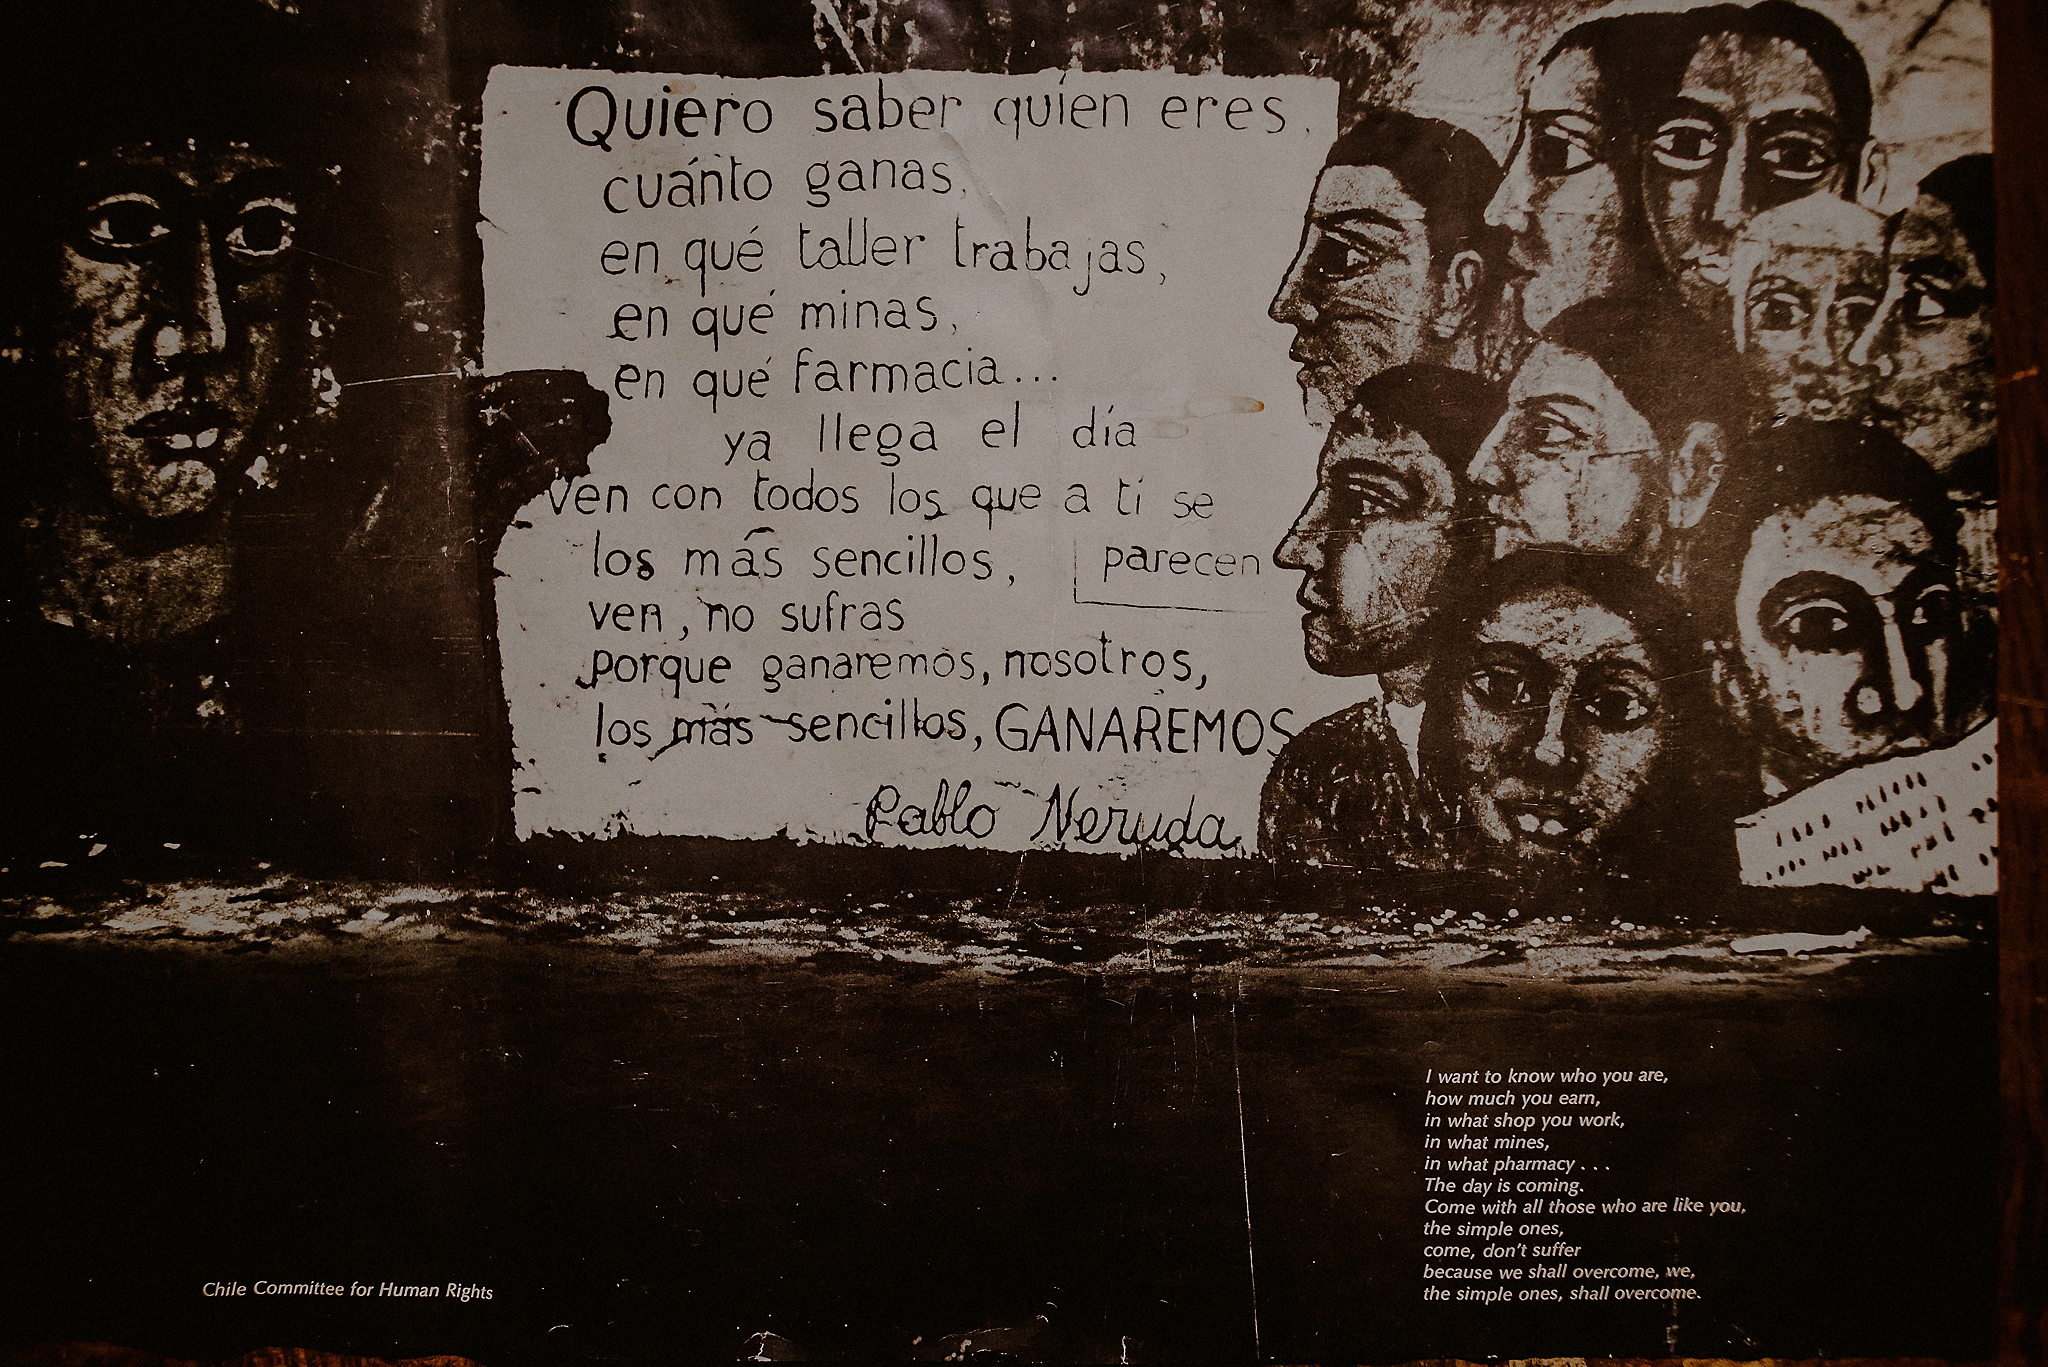 Quiero saber quien eres,
cuánto ganas,
en qué taller trabajas,
en qué minas,
en qué farmacia...
ya llega el día
ven con todos los que a ti se
parecen
los más sencillos,
ven, no sufras
porque ganaremos, nosotros,
los más sencillos, GANAREMOS
Pablo Neruda
I want to know who you are,
how much you earn,
in what shop you work,
in what mines,
in what pharmacy . . .
The day is coming.
Come with all those who are like you,
the simple ones,
come, don't suffer
because we shall overcome, we,
the simple ones, shall overcome.
Chile Committee for Human Rights